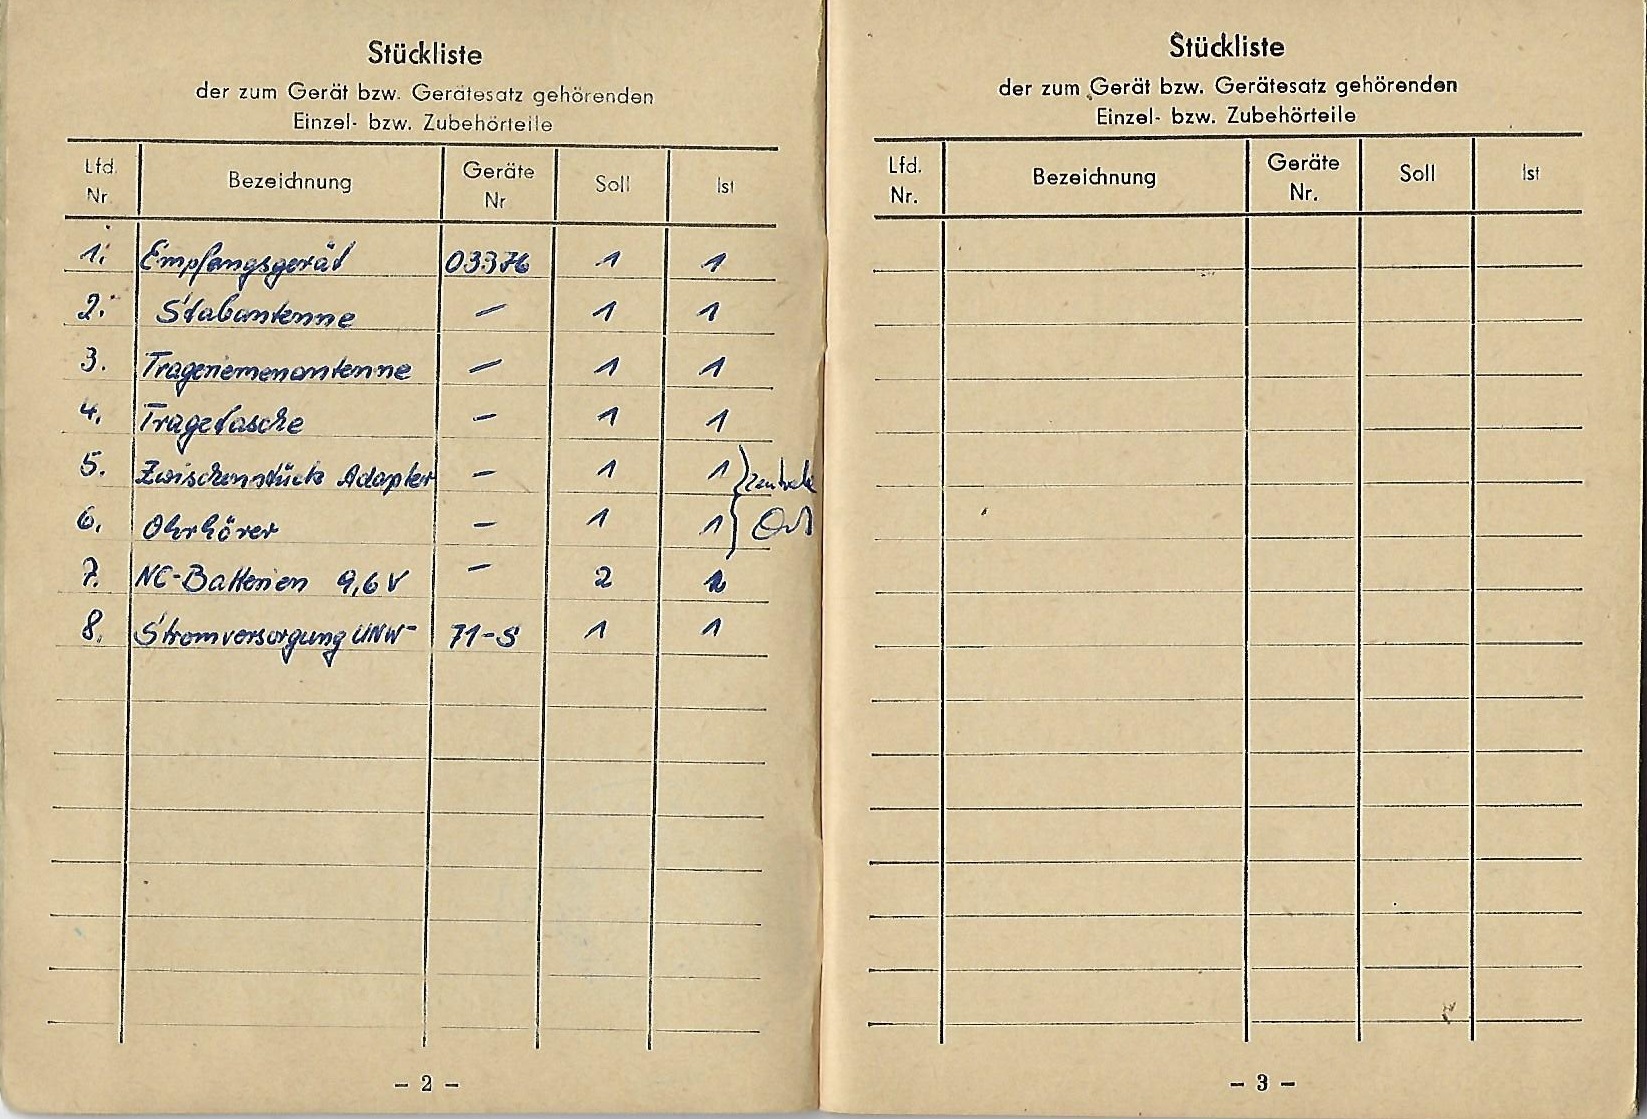 Stückliste
der zum Gerät bzw. Gerätesatz gehörenden
Einzel- bzw. Zubehörteile
Lfd. Nr. Bezeichnung Geräte Nr Soll Ist
1. Empfangsgerät 03376 1 1
2. Stabantenne – 1 1
3. Trageriemenantenne – 1 1
4. Tragetasche – 1 1
5. Zwischenstück Adapter – 1 1 } zentrale
6. Ohrhörer – 1 1 } Ort
7. NC-Batterien 9,6 V – 2
8. Stromversorgung UNW- 71-S 1 1
– 2 –
Stückliste
der zum Gerät bzw. Gerätesatz gehörenden
Einzel- bzw. Zubehörteile
Lfd. Nr. Bezeichnung Geräte Nr. Soll Ist
– 3 –